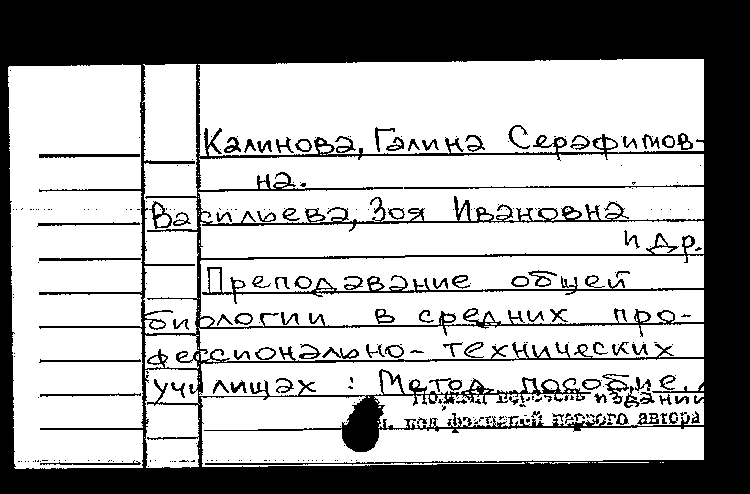 Калинова, Галина Серафимов-
на.
Васильева, Зоя Ивановна
и др.
Преподавание общей
биологии в средних про-
фессионально- технических
училищах : Метод. пособие.
Полный перечень изданий
см. под фамилией первого автора